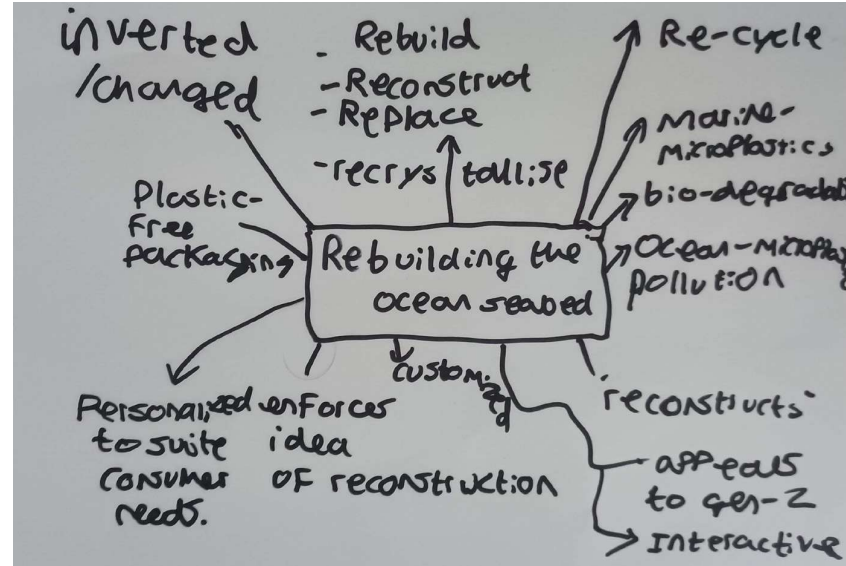 inverted
/changed
- Rebuild
- Reconstruct
- Replace
- recrystallise
Re-cycle
Marine-
microplastics
Plastic-
free
packaging
Rebuilding the
ocean seabed
Ocean-
pollution
customized
Personalized
to suite
consumer
needs.
enforces
idea
of reconstruction
"reconstructs"
appeals
to gen-Z
Interactive